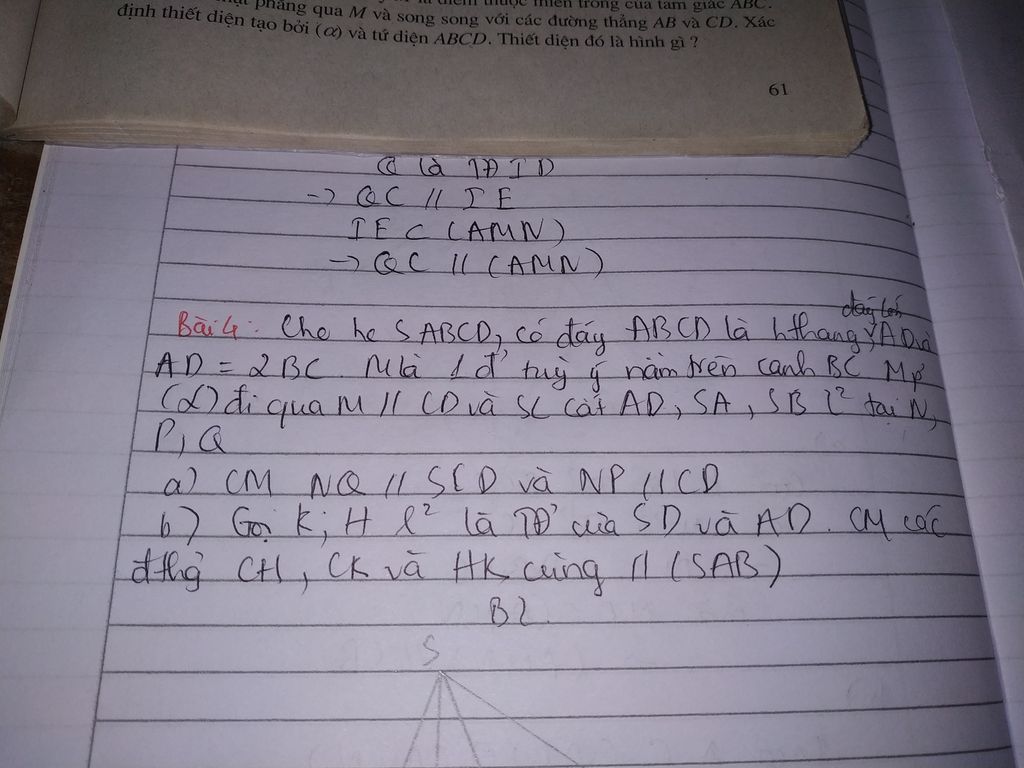 phẳng qua M và song song với các đường thẳng AB và CD. Xác
định thiết diện tạo bởi (α) và tứ diện ABCD. Thiết diện đó là hình gì ?
61
Q là TĐ ID
-> QC // IE
IE ⊂ (AMN)
-> QC // (AMN)
đáy lớn
Bài 4: Cho hc SABCD, có đáy ABCD là hthang, AD và
AD = 2BC. M là 1 đ' tuỳ ý nằm trên cạnh BC Mp'
(α) đi qua M // CD và SC cắt AD, SA, SB l² tại N,
P, Q
a) CM NQ // SCD và NP // CD
b) Gọi K; H l² là TĐ' của SD và AD. CM các
đthg' CH, CK và HK cùng // (SAB)
S